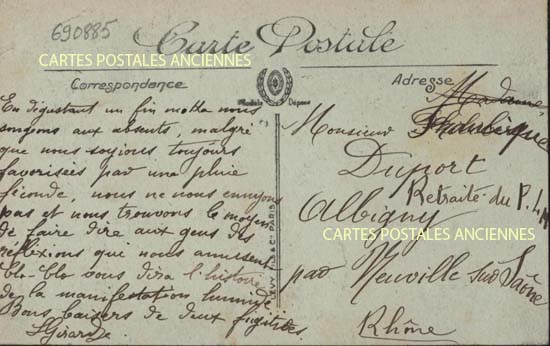 690885
CARTES POSTALES ANCIENNES
Carte Postale
Correspondance
Adresse
Modèle Déposé
En dégustant un fin mokka nous
songeons aux absents, malgré
que nous soyions toujours
favorisées par une pluie
féconde, nous ne nous ennuyons
pas et nous trouvons le moyen
de faire dire aux gens des
réflexions qui nous amusent
blo-blo vous dira l'histoire
de la manifestation humide
Bons baisers de deux fugitives.
LEVY FILS & Cie PARIS
Madame
Monsieur
Duport
Retraité du P.L.M
Albigny
CARTES POSTALES ANCIENNES
par Neuville sur Saône
Rhône